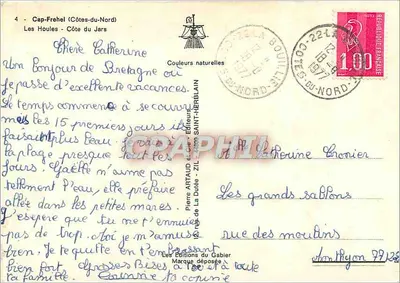 4 - Cap-Frehel (Côtes-du-Nord)
Les Houles - Côte du Jars
Couleurs naturelles
Chère Catherine
Un Bonjour de Bretagne où
je passe d'excellente vacances.
Le temps commence à se couvrir
mais les 15 premiers jours il
faisait plus beau
la plage presque tout les
jours. Gaëlle n'aime pas
tellement l'eau, elle préfère
allée dans les petites mares.
J'espère que tu ne t'ennuies
pas de trop. Moi je m'amuse
bien. Je te quitte en t'embrassant
bien fort Grosses Bises à toi et à toute
ta famille. ta copine
22-LA BOUILLIE
COTES-DU-NORD
1977
22-LA BOUILLIE
COTES-DU-NORD
1977
1,00
Pierre ARTAUD et Cie - Editeurs
SAINT-HERBLAIN
CPARAMA
Catherine
Les grands sablons
rue des moulins
Monthyon 77122
Les Editions du Gabier
Marque déposée